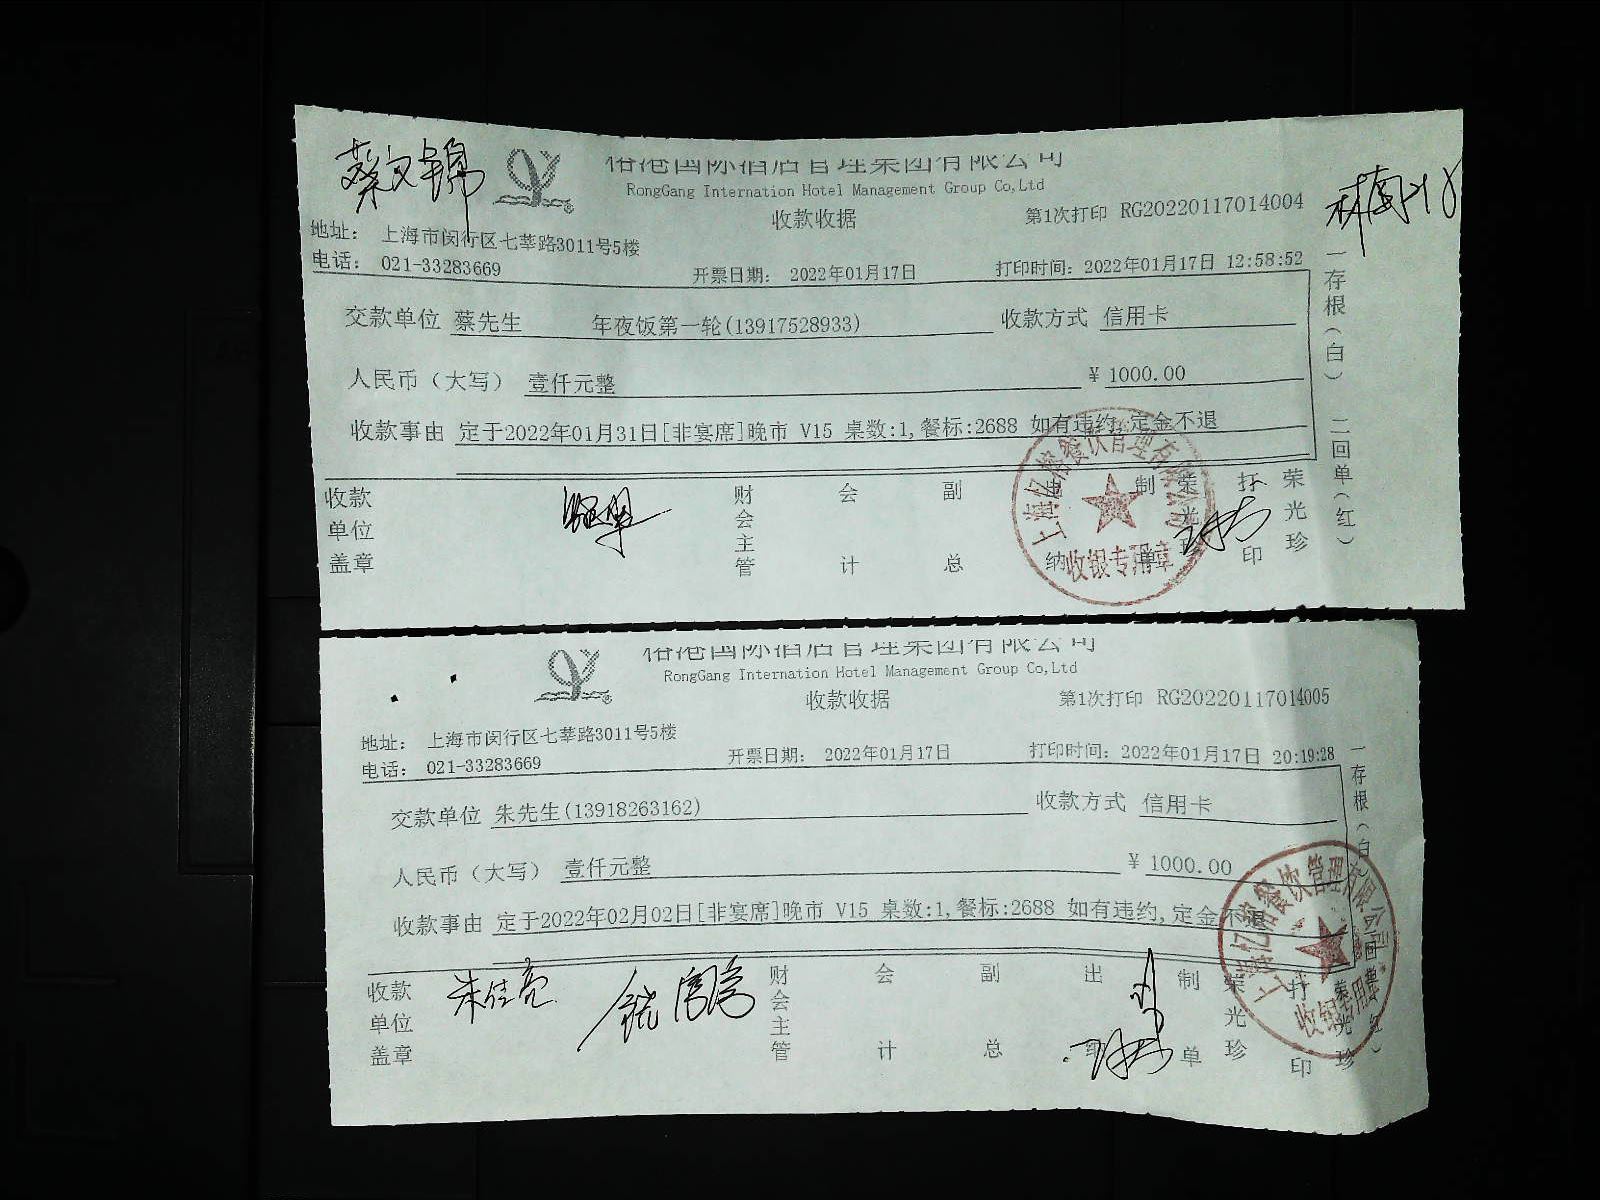 蔡文锦
裕港国际酒店管理集团有限公司
RongGang Internation Hotel Management Group Co,Ltd
收款收据
第1次打印 RG20220117014004
地址： 上海市闵行区七莘路3011号5楼
电话： 021-33283669
开票日期： 2022年01月17日
打印时间：2022年01月17日 12:58:52
交款单位 蔡先生 年夜饭第一轮(13917528933) 收款方式 信用卡
人民币（大写） 壹仟元整 ￥ 1000.00
收款事由 定于2022年01月31日[非宴席]晚市 V15 桌数:1,餐标:2688 如有违约,定金不退
收款单位盖章 财会主管 会计 副总 出纳 制单 荣光珍 打印 荣光珍
一存根（白） 二回单（红）
收银专用章
裕港国际酒店管理集团有限公司
RongGang Internation Hotel Management Group Co,Ltd
收款收据
第1次打印 RG20220117014005
地址： 上海市闵行区七莘路3011号5楼
电话： 021-33283669
开票日期： 2022年01月17日
打印时间：2022年01月17日 20:19:28
交款单位 朱先生(13918263162) 收款方式 信用卡
人民币（大写） 壹仟元整 ￥ 1000.00
收款事由 定于2022年02月02日[非宴席]晚市 V15 桌数:1,餐标:2688 如有违约,定金不退
收款单位盖章 朱佳亮 财会主管 会计 副总 出纳 制单 荣光珍 打印 荣光珍
一存根（白） 二回单（红）
收银专用章